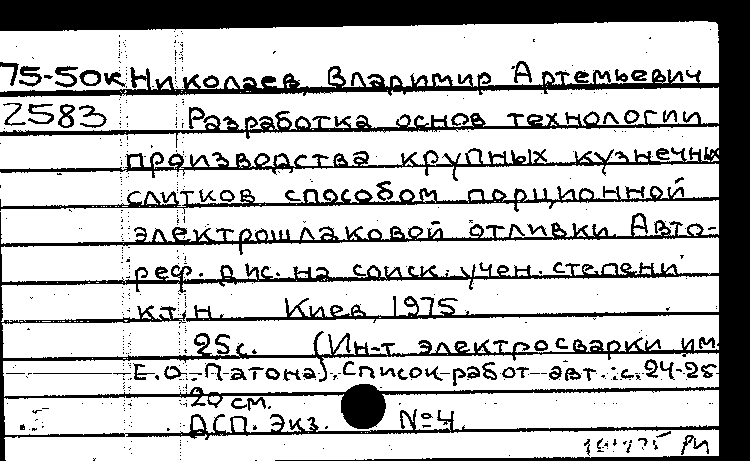 75-50к Николаев, Владимир Артемьевич
2583 Разработка основ технологии
производства крупных кузнечных
слитков способом порционной
электрошлаковой отливки. Авто-
реф. дис. на соиск. учен. степени
к.т.н. Киев, 1975.
25с. (Ин-т электросварки им.
Е.О. Патона). Список работ авт.: с. 24-25
20 см.
ДСП. Экз. №4.